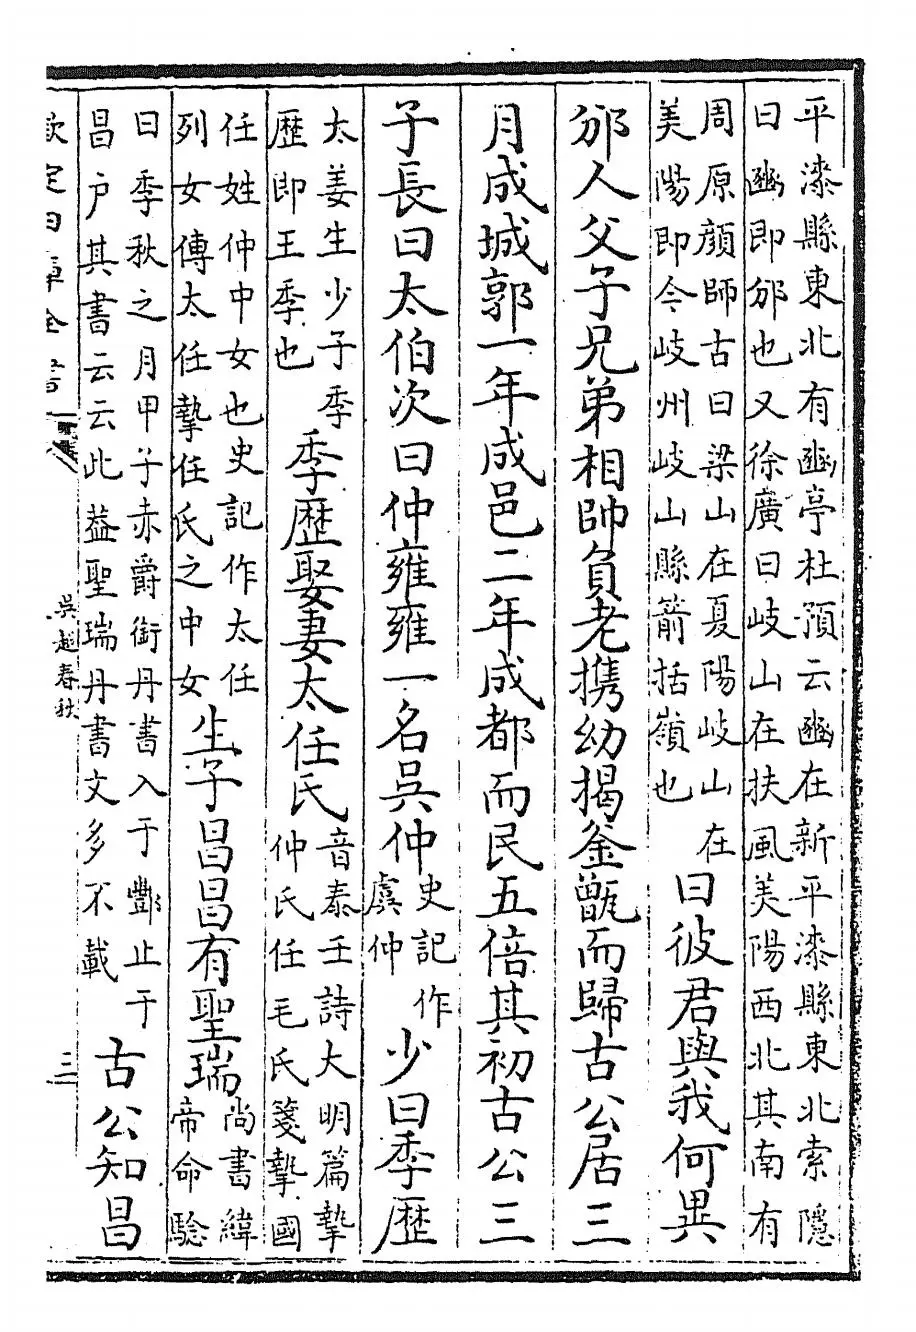 平漆縣東北有豳亭杜預云豳在新平漆縣東北索隱
曰豳即邠也又徐廣曰岐山在扶風美陽西北其南有
周原顔師古曰梁山在夏陽岐山在
美陽即今岐州岐山縣箭括嶺也
曰彼君與我何異
邠人父子兄弟相帥負老携幼揭釡甑而歸古公居三
月成城郭一年成邑二年成都而民五倍其初古公三
子長曰太伯次曰仲雍雍一名吳仲
史記作
虞仲
少曰季歷
太姜生少子季
歷即王季也
季歷娶妻太任氏
音泰壬詩大明篇摯
仲氏任毛氏箋摯國
任姓仲中女也史記作太任
列女傳太任摯任氏之中女
生子昌昌有聖瑞
尚書緯
帝命騐
曰季秋之月甲子赤爵銜丹書入于酆止于
昌户其書云云此葢聖瑞丹書文多不載
古公知昌
欽定四庫全書
吳越春秋
三